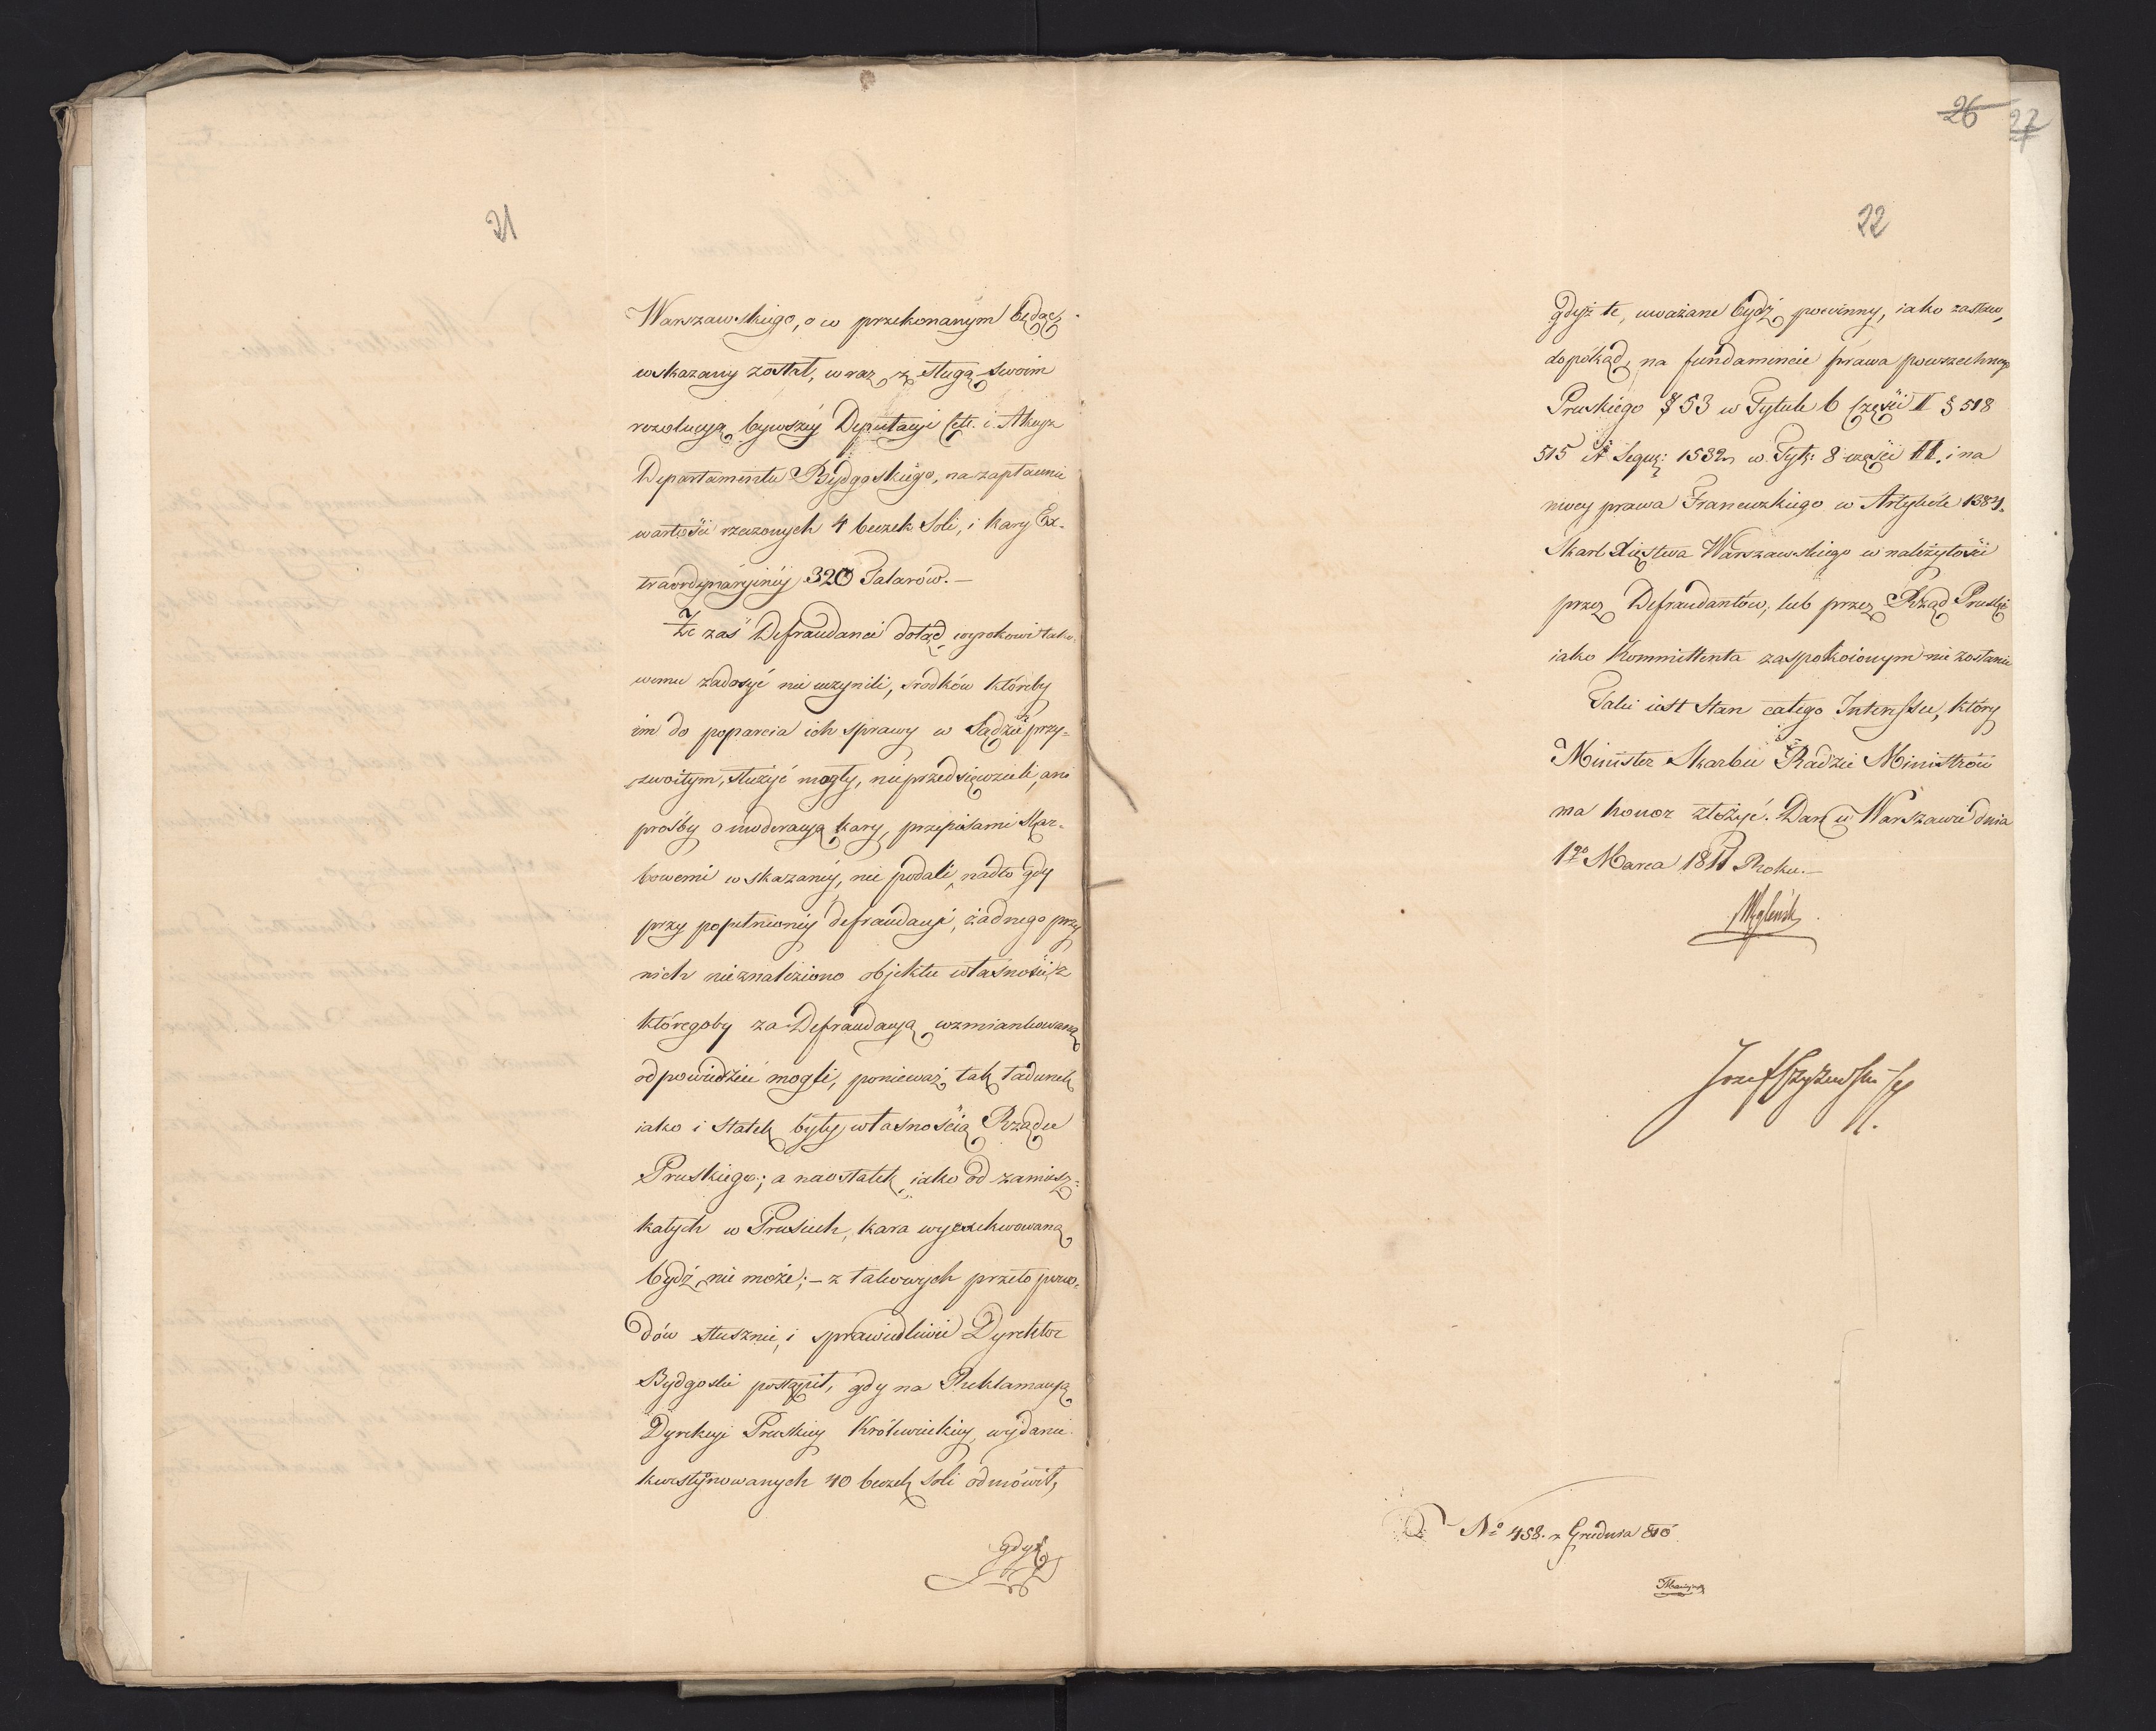 21
Warszawskiego, o co przekonanym będąc
wskazany został, wraz z sługą swoim
rezolucyą bywszéy Deputacyi Celł. i Akcyz
Departamentu Bydgoskiego, na zapłacenie
wartości rzeczonych 4 beczek Soli, i kary Ex-
traordynaryinéy 320 Talarów.—
Że zaś Defraudanci dotąd, wyrokowi tako-
wemu zadosyć nie uczynili, srodków któreby
im do poparcia ich sprawy w Sądzie przy-
zwoitym, służyć mogły, nieprzedsięwzieli, ani
prośby o moderacyą kary, przepisami Skar-
bowemi wskazanéy, nie podali, nadto gdy
przy popełnionéy defraudacyi, żadnego przy
nich nieznaleziono objektu własności, z
któregoby za Defraudacyą wzmiankowaną
odpowiedzieć mogli, ponieważ tak ładunek
iako i Statek były własnością Rządu
Pruskiego; a naostatek, iako od zamiesz-
kałych w Prusiech, kara wyexekwowaną
bydź nie może;— z takowych przeto powo-
dów słusznie, i sprawiedliwie Dyrektor
Bydgoski postąpił, gdy na Reklamacyą
Dyrekcyi Pruskiey Królewieckiey, wydanie
kwestÿnowanych 40 beczek Soli odmówił,
gdyż
26
27
22
gdyż te, uważane bydź powinny, iako zastaw,
dopókąd, na fundamencie prawa powszechnego
Pruskiego § 53 w Tytule 6 Części II § 518
515 et Sequ: 1532 w Tyt: 8 części II. i na
mocy prawa Francuzkiego w Artykule 1384.
Skarb Xięstwa Warszawskiego w należytości
przez Defraudantów, lub przez Rząd Pruski
iako Kommittenta zaspokoionym nie zostanie
Taki iest Stan całego Interessu, który
Minister Skarbu Radzie Ministrów
ma honor złożyć. Dan w Warszawie dnia
1go Marca 1811 Roku.—
Węgleński
Jozef
No 458. z Grudnia 810